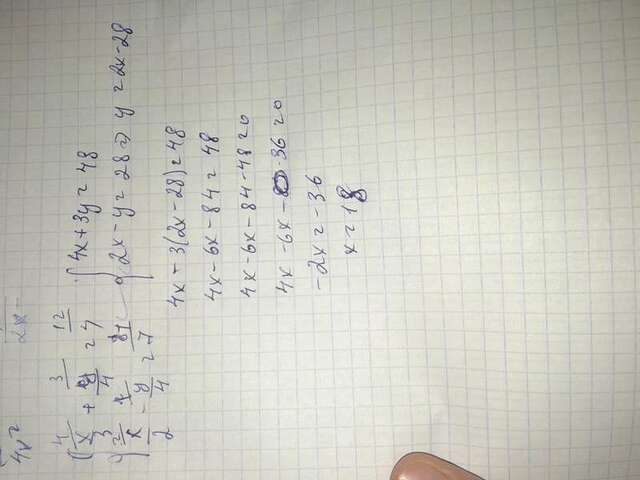 4x²
2x
4 3 12
x/3 + y/4 = 4
x/2 - y/4 = 7
{ 4x + 3y = 48
2x - y = 28 => y = 2x - 28
4x - 3(2x - 28) = 48
4x - 6x - 84 = 48
4x - 6x - 84 - 48 = 0
4x - 6x - 36 = 0
-2x = -36
x = 18